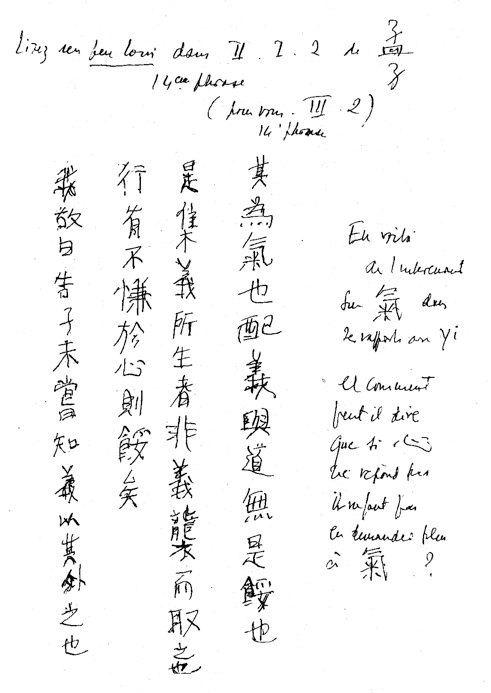 Lisez un peu loin dans II . I . 2 de 孟子
14ème phrase
( pour vous . III . 2 )
14e phrase
其為氣也配義與道無是餒也
是集義所生者非義襲而取之也
行有不慊於心則餒矣
我故曰告子未嘗知義以其外之也
En voilà
de l'intéressant
sur 氣 dans
le rapport au Yi
et comment
peut il dire
que si 心
ne répond pas
il ne faut pas
en demander plus
à 氣 ?